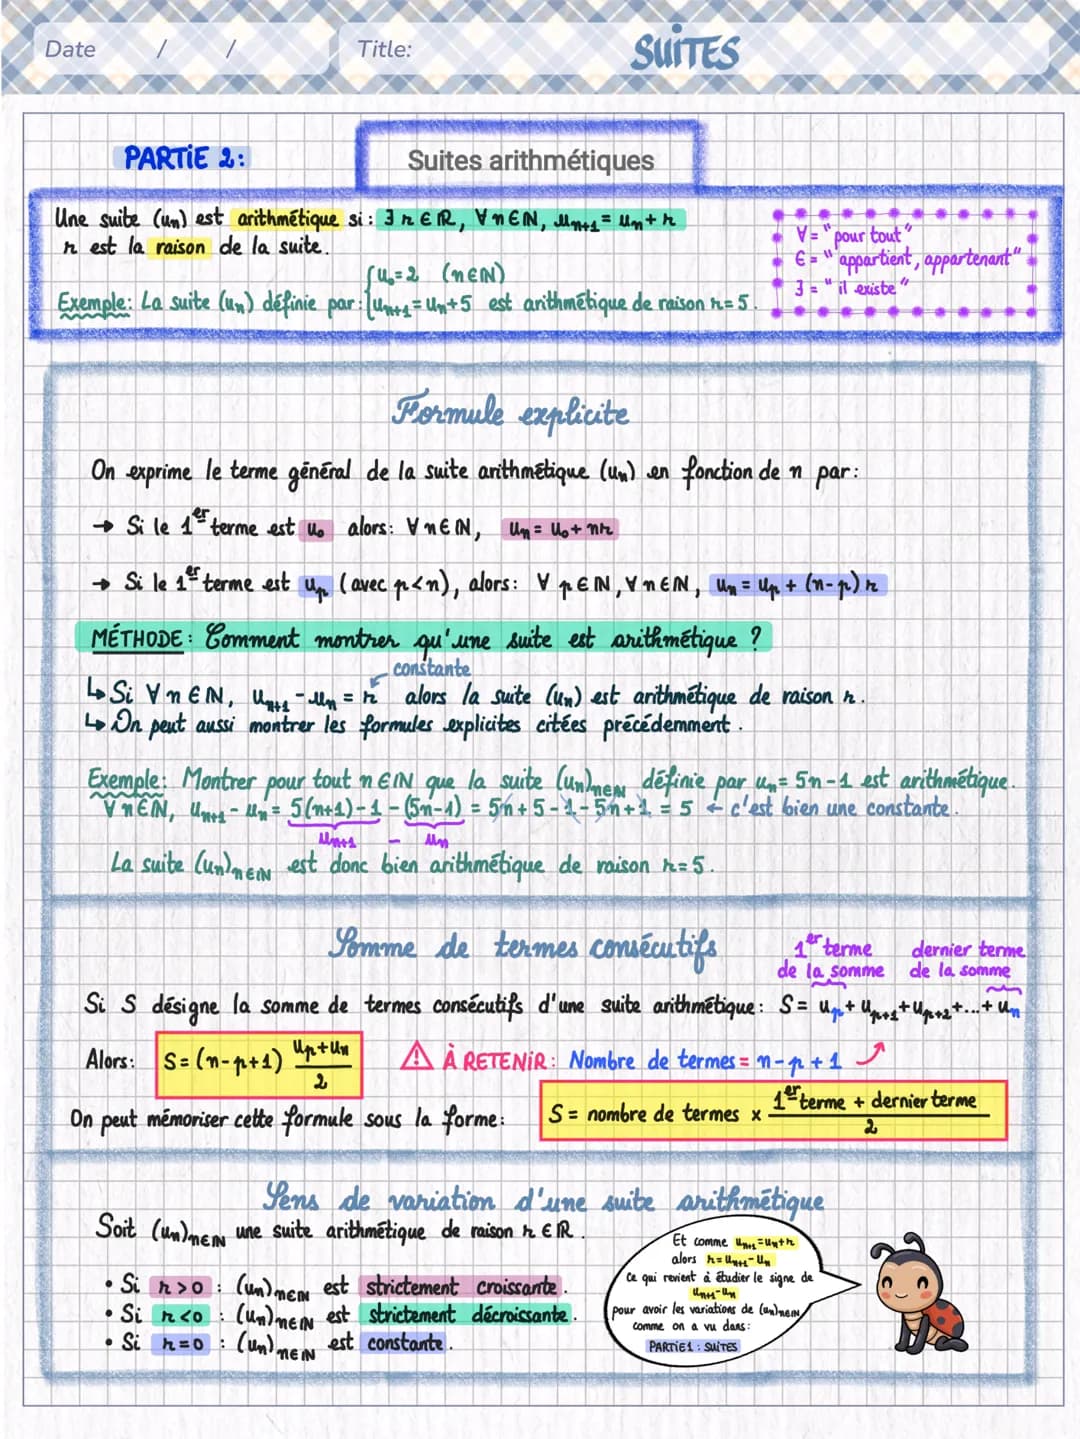 Date / / Title: SUiTES
PARTiE 2: Suites arithmétiques
Une suite (un) est arithmétique si : ∃ r ∈ ℝ, ∀ n ∈ ℕ, un+1 = un + r
r est la raison de la suite.
∀ = "pour tout"
∈ = "appartient, appartenant"
∃ = "il existe"
Exemple: La suite (un) définie par : { u0 = 2 (n∈ℕ)
un+1 = un + 5 est arithmétique de raison r = 5.
Formule explicite
On exprime le terme général de la suite arithmétique (un) en fonction de n par :
→ Si le 1er terme est u0 alors: ∀ n ∈ ℕ, un = u0 + nr
→ Si le 1er terme est up (avec p<n), alors: ∀ p ∈ ℕ, ∀ n ∈ ℕ, un = up + (n-p) r
MÉTHODE : Comment montrer qu'une suite est arithmétique ?
constante
↳ Si ∀ n ∈ ℕ, un+1 - un = r alors la suite (un) est arithmétique de raison r.
↳ On peut aussi montrer les formules explicites citées précédemment.
Exemple: Montrer pour tout n ∈ ℕ que la suite (un)n∈ℕ définie par un = 5n - 1 est arithmétique.
∀ n∈ℕ, un+1 - un = 5(n+1) - 1 - (5n-1) = 5n + 5 - 1 - 5n + 1 = 5 ← c'est bien une constante.
un+1 - un
La suite (un)n∈ℕ est donc bien arithmétique de raison r = 5.
Somme de termes consécutifs
1er terme de la somme
dernier terme de la somme
Si S désigne la somme de termes consécutifs d'une suite arithmétique : S = up + up+1 + up+2 + ... + un
Alors: S = (n-p+1) up+un / 2
⚠ À RETENiR : Nombre de termes = n - p + 1
On peut mémoriser cette formule sous la forme: S = nombre de termes x 1er terme + dernier terme / 2
Sens de variation d'une suite arithmétique
Soit (un)n∈ℕ une suite arithmétique de raison r ∈ ℝ.
• Si r > 0 : (un)n∈ℕ est strictement croissante.
• Si r < 0 : (un)n∈ℕ est strictement décroissante.
• Si r = 0 : (un)n∈ℕ est constante.
Et comme un+1 = un + r
alors r = un+1 - un
Ce qui revient à étudier le signe de
un+1 - un
pour avoir les variations de (un)n∈ℕ
comme on a vu dans:
PARTiE1 : SUiTES